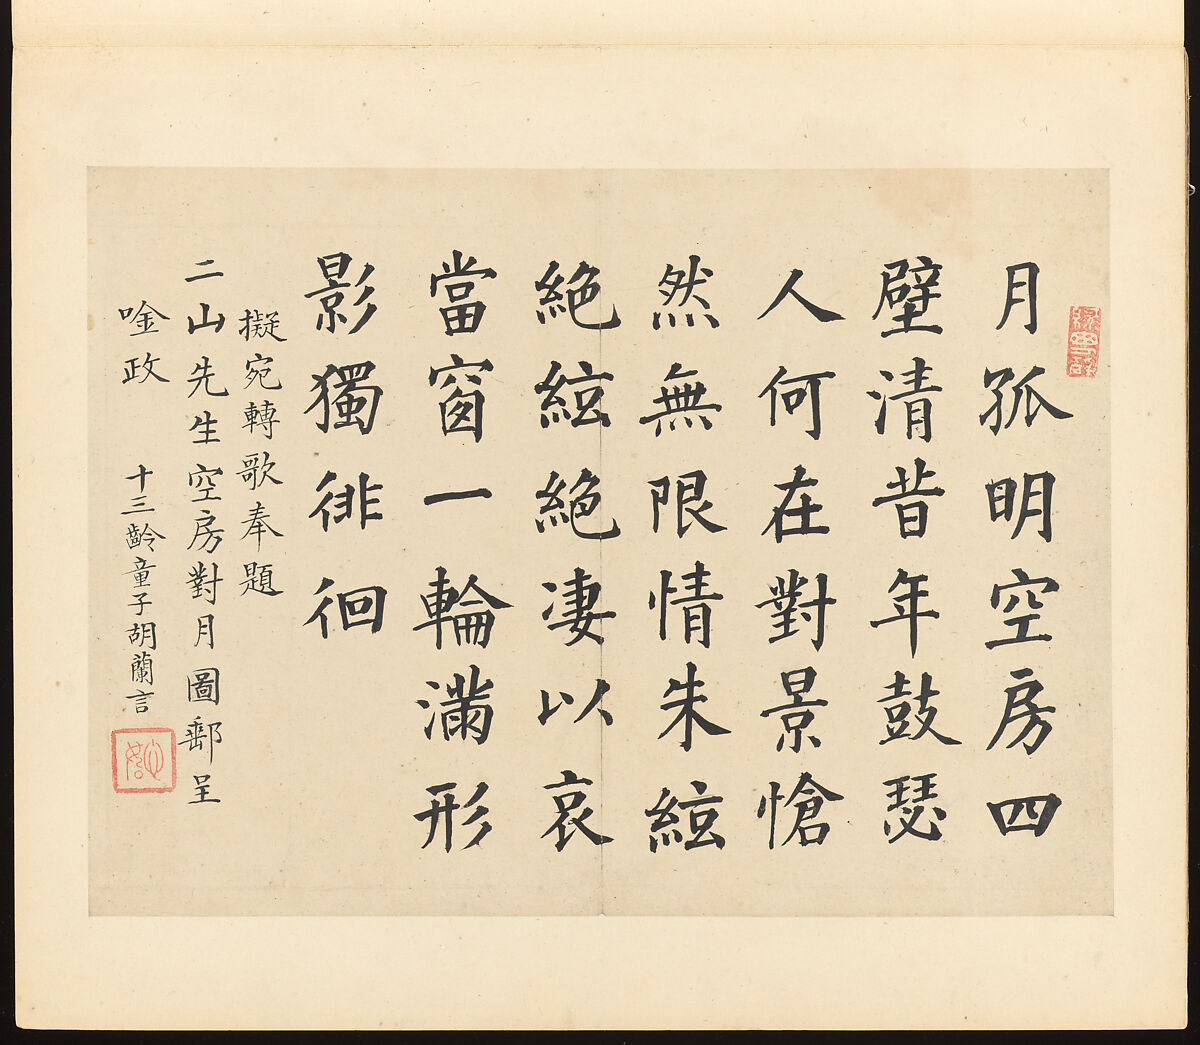 月孤明空房四
壁清昔年鼓瑟
人何在對景愴
然無限情朱絃
絕絃絕凄以哀
當窗一輪滿形
影獨徘徊
擬宛轉歌奉題
二山先生空房對月圖郵呈
唫政
十三齡童子胡蘭言